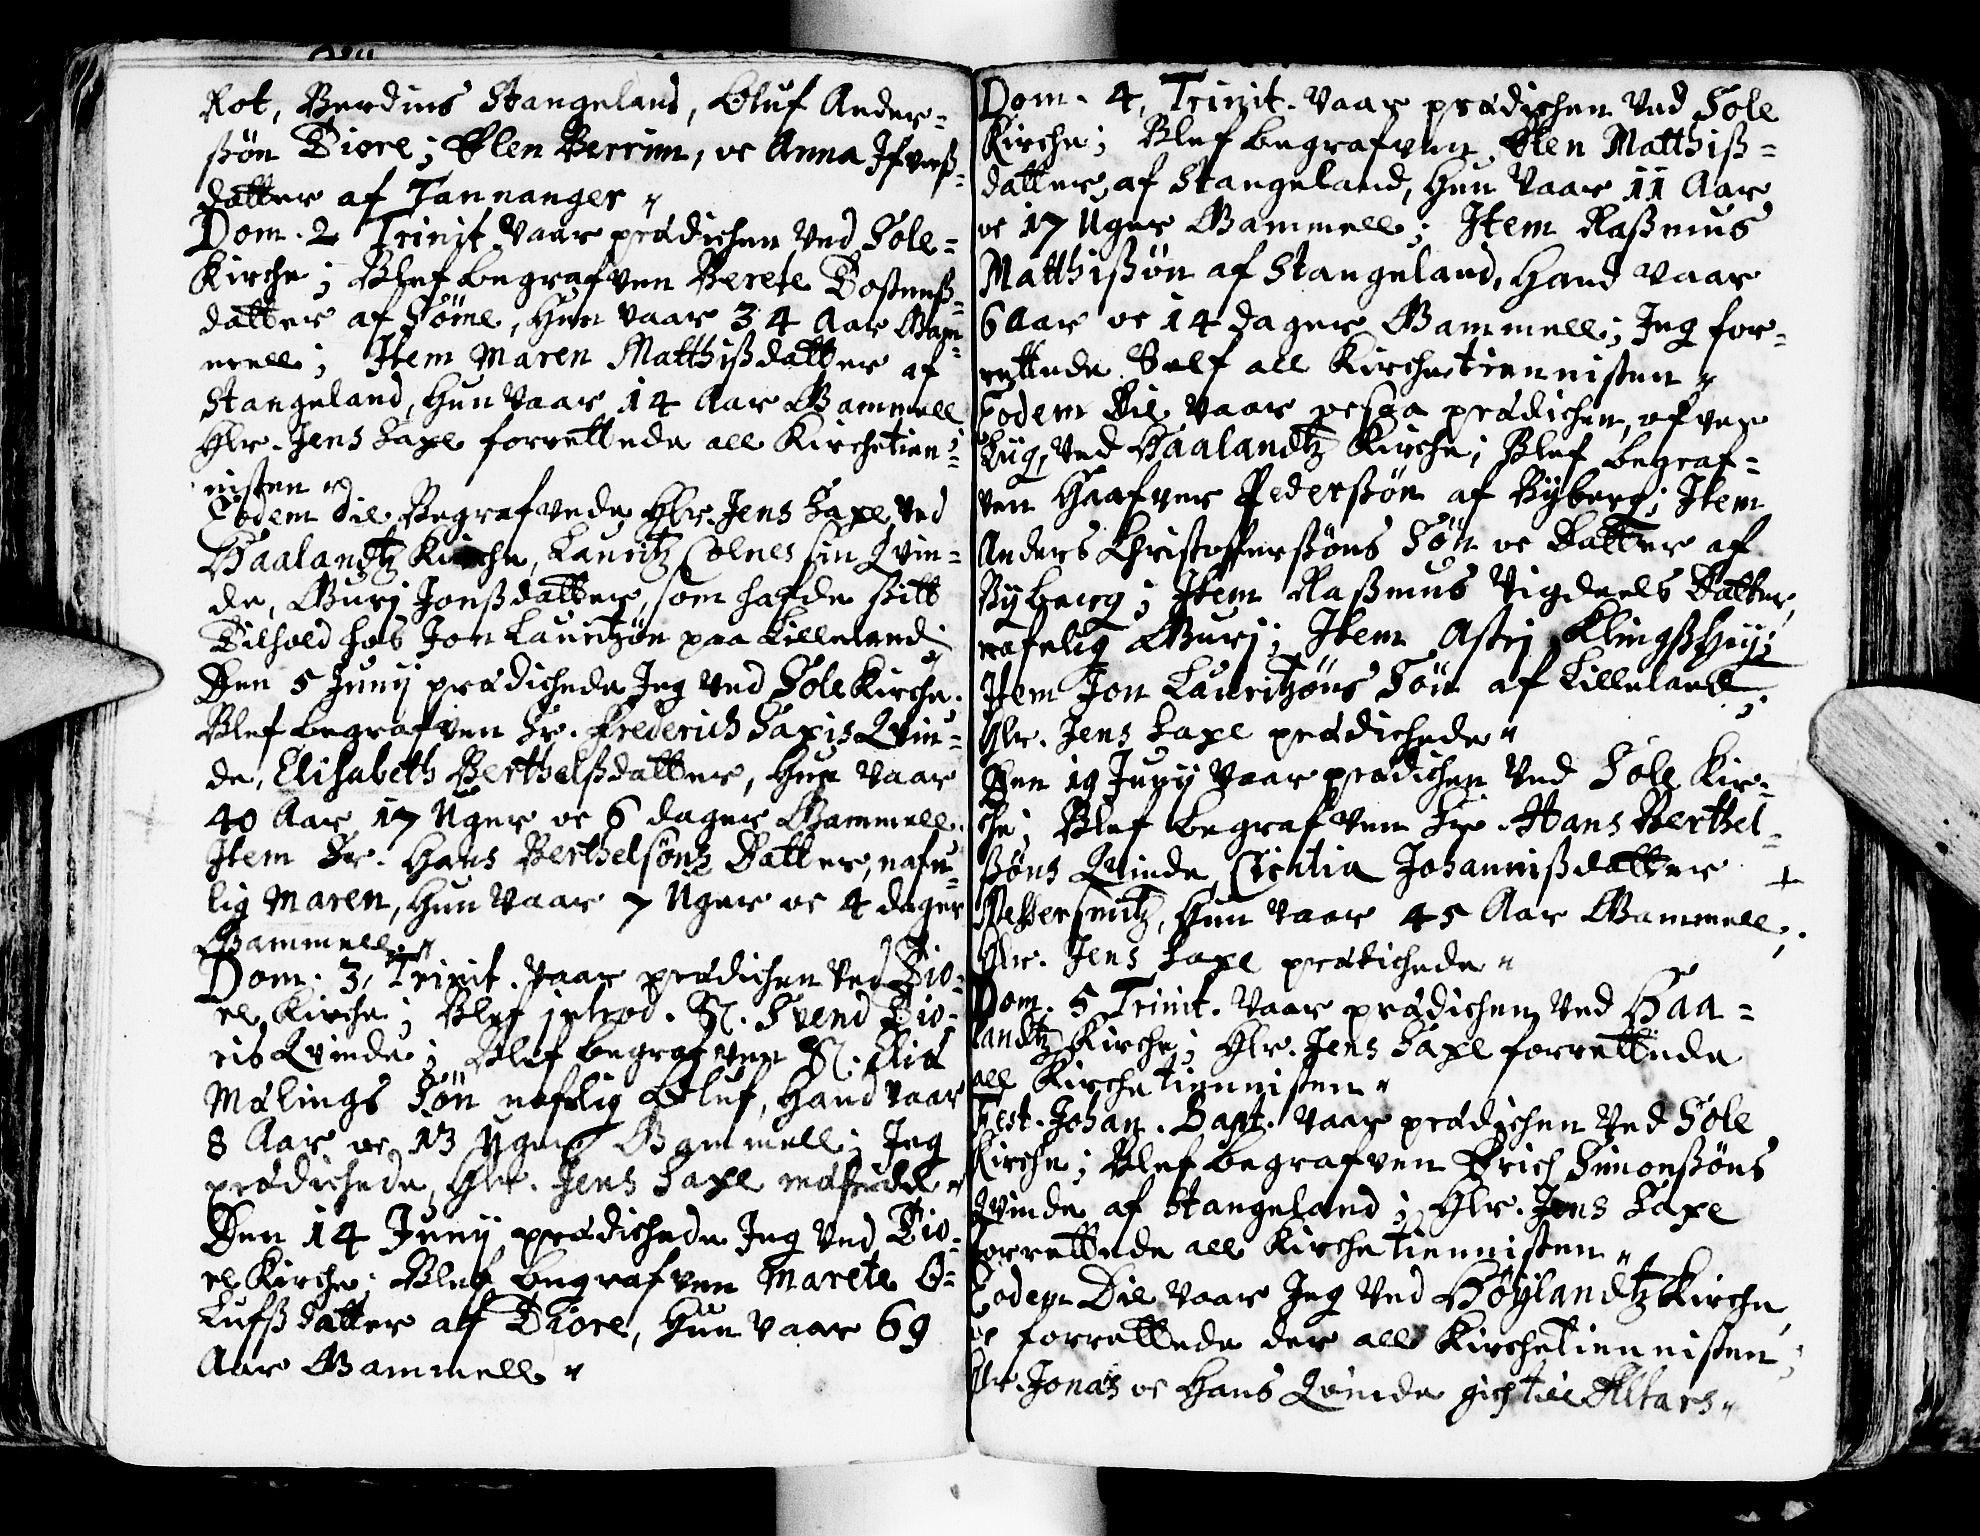 Rot, Berdius Stangeland, Oluf Ander-
ßön Tiore; Elen Berrim, oc Anna Ifverß-
datter af Tannanger "
Dom. 2 Trinit. Vaar prædichen Ved Sole-
Kirche; Blef begrafven Berete Tostenß-
datter af Söme, Hun Vaar 34 Aar Gam-
mell; Item Maren Matthißdatter af
Stangeland, Hun Vaar 14 Aar Gammell;
Hlr. Jens Saxe forrettede all Kirchetien-
nisten "
Eodem die Begrafvede Hlr. Jens Saxe Ved
Haalandtz Kirche, Lauritz Colnes sin Qvin-
de, Guri Jonßdatter, som hafde sitt
Tilhold hos Jon Lauritzön paa Lilleland;
Den 5 Junij prædichede Jeg Ved Sole Kirche.
Blef begrafven Sr. Frederich Saxis Qvin-
de, Elisabeth Berthelßdatter, Hun Vaar
40 Aar 17 Uger oc 6 dager Gammell.
Item Sr. Hans Berthelsöns Datter, nafn-
lig Maren, Hun Vaar 7 Uger oc 4 dager
Gammell "
Dom. 3, Trinit. Vaar prædichen Ved Tio-
re Kirche; Blef introd. Svend Tio-
ris Qvinde; Blef begrafven
Mælings Sön nafnlig Oluf, Hand Vaar
8 Aar oc 13 Uger Gammell; Jeg
prædichede, Hlr. Jens Saxe
Den 14 Junij prædichede Jeg Ved Tio-
re Kirche; Blef begrafven Marete O-
Lufß Datter af Tiore, Hun Vaar 69
Aar Gammell "
Dom. 4, Trinit. Vaar prædichen Ved Sole
Kirche; Blef begrafven Elen Matthiß-
datter af Stangeland, Hun Vaar 11 Aar
oc 17 Uger Gammell; Item Raßmus
Matthißön af Stangeland, Hand Vaar
6 Aar oc 14 dager Gammell; Jeg for-
rettede Self all Kirchetiennisten "
Eodem Die Vaar ocsaa prædichen, ofver
Liig, Ved Haalandtz Kirche; Blef begraf-
ven Haafver Pederßön af Ryberg; Item
Anders Christofferßöns Sön oc Datter af
Ryberg; Item Raßmus Vigdeels Datter,
nafnlig Guri; Item Astri Klingßhey;
Item Jon Lauritzöns Sön af Lilleland;
Hlr. Jens Saxe prædichede "
Den 19 Junij Vaar prædichen Ved Sole Kir-
che; Blef begrafven Sr. Hans Berthel-
ßöns Qvinde, Cicilia Johannißdatter +
Hun Vaar 45 Aar Gammell;
Hlr. Jens Saxe prædichede "
Dom. 5 Trinit. Vaar prædichen Ved Haa-
landtz Kirche; Hlr. Jens Saxe forrettede
all Kirchetiennisten "
Fest. Johan. Bapt. Vaar prædichen Ved Sole
Kirche; Blef begrafven Erich Simonßöns
Qvinde af Stangeland; Hlr. Jens Saxe
forrettede all Kirchetiennisten "
Eodem Die Vaar Jeg Ved Höylandtz Kirche,
oc forrettede der all Kirchetiennisten;
Hr. Jonas oc Hans Qvinde gich till Altars "